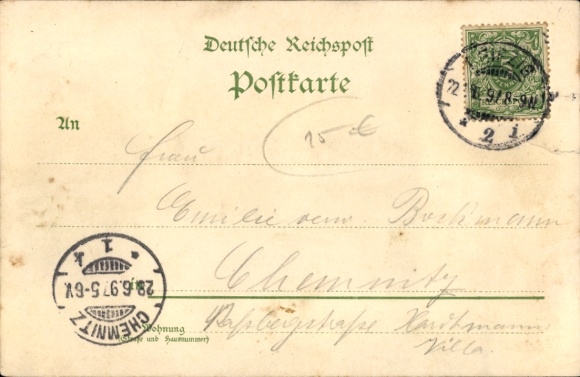 Deutsche Reichspost
Postkarte
An
15 €
Frau
Emilie verw. Bockmann
Chemnitz
Wohnung
(Straße und Hausnummer)
Kaßbergstraße Hartmann
Villa.
CHEMNITZ
1 k
28.6.97.5-6V.
2 i